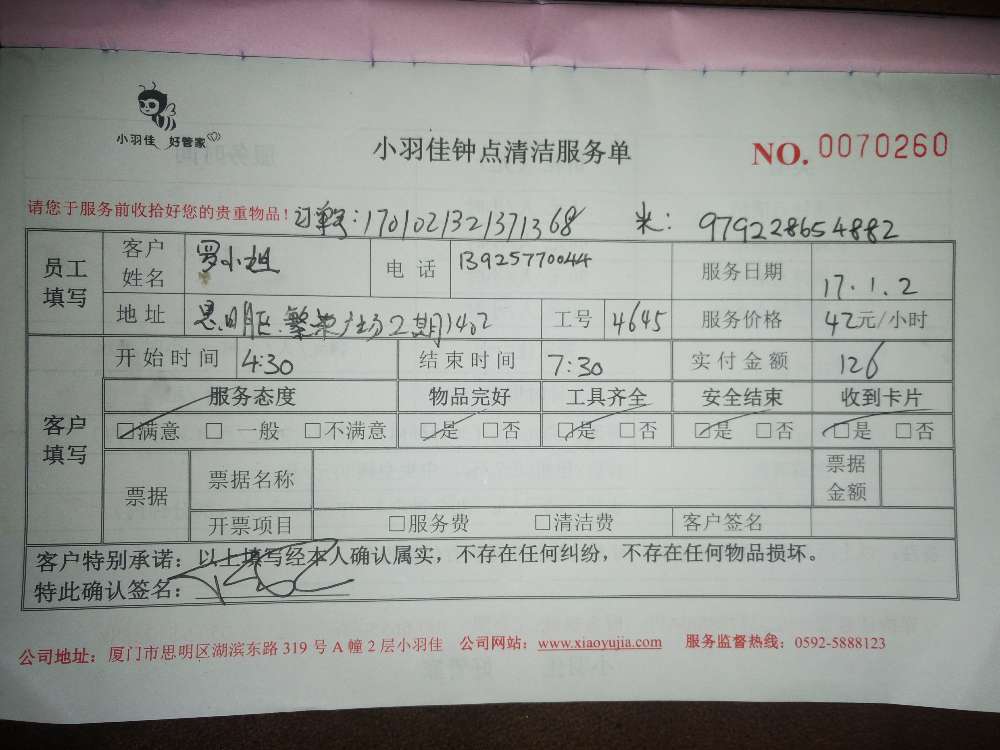 小羽佳 好管家
小羽佳钟点清洁服务单
NO. 0070260
请您于服务前收拾好您的贵重物品！ 订单号：1701021321371368 米：979228654882
员工填写 客户姓名 罗小姐 电话 13925770044 服务日期 17.1.2
地址 思明区繁荣广场2期1402 工号 4645 服务价格 42元/小时
客户填写 开始时间 4:30 结束时间 7:30 实付金额 126
服务态度 物品完好 工具齐全 安全结束 收到卡片
☑满意 □一般 □不满意 ☑是 □否 ☑是 □否 ☑是 □否 ☑是 □否
票据 票据名称 票据金额
开票项目 □服务费 □清洁费 客户签名
客户特别承诺：以上填写经本人确认属实，不存在任何纠纷，不存在任何物品损坏。
特此确认签名：
公司地址：厦门市思明区湖滨东路 319 号 A 幢 2 层小羽佳 公司网站：www.xiaoyujia.com 服务监督热线：0592-5888123